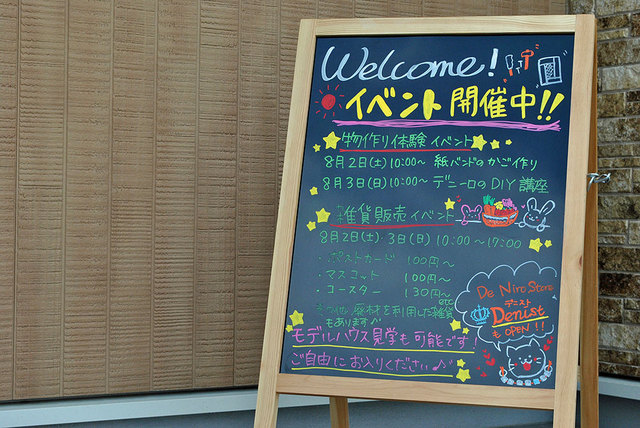 Welcome!
イベント開催中!!
物作り体験イベント
8月2日(土)10:00〜 紙バンドのかご作り
8月3日(日)10:00〜 デニーロのDIY講座
雑貨販売イベント
8月2日(土)・3日(日) 10:00〜17:00
・ポストカード 100円〜
・マスコット 100円〜
・コースター 130円〜
etc
その他 廃材を利用した雑貨
もあります♪
De Niro Store
デニスト
Denist
も OPEN!!
モデルハウス見学も可能です!
ご自由にお入りください♪